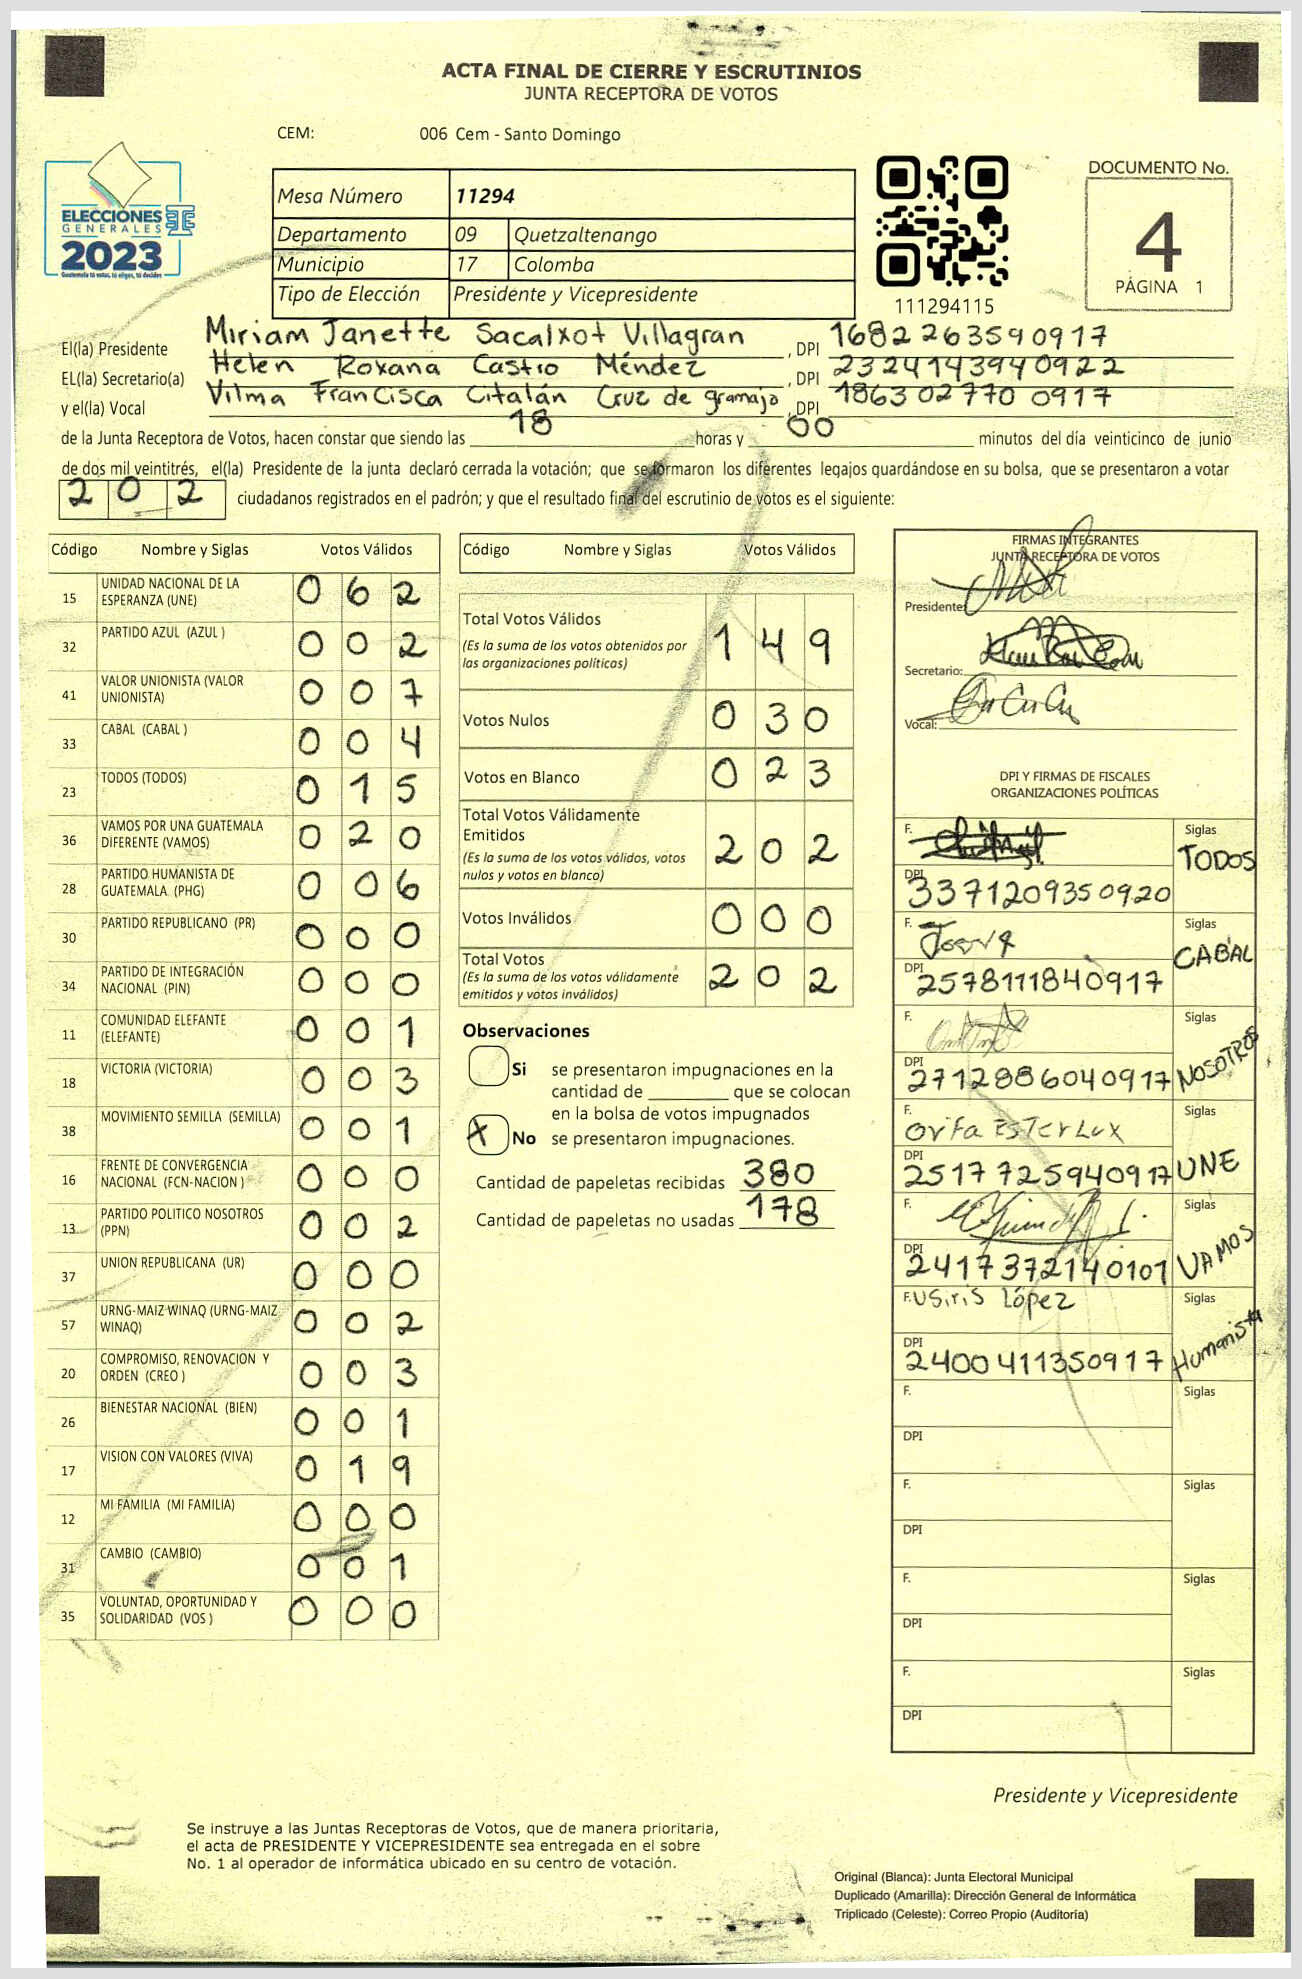 ACTA FINAL DE CIERRE Y ESCRUTINIOS
JUNTA RECEPTORA DE VOTOS
CEM: 006 Cem - Santo Domingo
ELECCIONES
GENERALES
2023
Guatemala tú votas, tú eliges, tú decides
Mesa Número 11294
Departamento 09 Quetzaltenango
Municipio 17 Colomba
Tipo de Elección Presidente y Vicepresidente
111294115
DOCUMENTO No.
4
PÁGINA 1
El(la) Presidente Miriam Janette Sacalxot Villagran , DPI 1682263590917
EL(la) Secretario(a) Helen Roxana Castro Méndez , DPI 2324143940922
y el(la) Vocal Vilma Francisca Citalán Cruz de gramajo , DPI 1863027700917
de la Junta Receptora de Votos, hacen constar que siendo las 18 horas y 00 minutos del día veinticinco de junio
de dos mil veintitrés, el(la) Presidente de la junta declaró cerrada la votación; que se formaron los diferentes legajos quardándose en su bolsa, que se presentaron a votar
202 ciudadanos registrados en el padrón; y que el resultado final del escrutinio de votos es el siguiente:
Código Nombre y Siglas Votos Válidos
15 UNIDAD NACIONAL DE LA ESPERANZA (UNE) 062
32 PARTIDO AZUL (AZUL ) 002
41 VALOR UNIONISTA (VALOR UNIONISTA) 007
33 CABAL (CABAL ) 004
23 TODOS (TODOS) 015
36 VAMOS POR UNA GUATEMALA DIFERENTE (VAMOS) 020
28 PARTIDO HUMANISTA DE GUATEMALA (PHG) 006
30 PARTIDO REPUBLICANO (PR) 000
34 PARTIDO DE INTEGRACIÓN NACIONAL (PIN) 000
11 COMUNIDAD ELEFANTE (ELEFANTE) 001
18 VICTORIA (VICTORIA) 003
38 MOVIMIENTO SEMILLA (SEMILLA) 001
16 FRENTE DE CONVERGENCIA NACIONAL (FCN-NACION ) 000
13 PARTIDO POLITICO NOSOTROS (PPN) 002
37 UNION REPUBLICANA (UR) 000
57 URNG-MAIZ WINAQ (URNG-MAIZ WINAQ) 002
20 COMPROMISO, RENOVACION Y ORDEN (CREO ) 003
26 BIENESTAR NACIONAL (BIEN) 001
17 VISION CON VALORES (VIVA) 019
12 MI FAMILIA (MI FAMILIA) 000
31 CAMBIO (CAMBIO) 001
35 VOLUNTAD, OPORTUNIDAD Y SOLIDARIDAD (VOS ) 000
Código Nombre y Siglas Votos Válidos
Total Votos Válidos 149
(Es la suma de los votos obtenidos por
las organizaciones políticas)
Votos Nulos 030
Votos en Blanco 023
Total Votos Válidamente
Emitidos 202
(Es la suma de los votos válidos, votos
nulos y votos en blanco)
Votos Inválidos 000
Total Votos 202
(Es la suma de los votos válidamente
emitidos y votos inválidos)
Observaciones
Si se presentaron impugnaciones en la
cantidad de ________ que se colocan
en la bolsa de votos impugnados
X No se presentaron impugnaciones.
Cantidad de papeletas recibidas 380
Cantidad de papeletas no usadas 178
FIRMAS INTEGRANTES
JUNTA RECEPTORA DE VOTOS
Presidente:
Secretario:
Vocal:
DPI Y FIRMAS DE FISCALES
ORGANIZACIONES POLÍTICAS
F. Siglas TODOS
DPI 3371209350920
F. Siglas CABAL
DPI 2578111840917
F. Siglas NOSOTROS
DPI 2712886040917
F. Orfa Ester Lux Siglas UNE
DPI 2517725940917
F. Siglas VAMOS
DPI 2417372140101
F. Usiris López Siglas Humanista
DPI 2400411350917
F. Siglas
DPI
F. Siglas
DPI
F. Siglas
DPI
F. Siglas
DPI
Presidente y Vicepresidente
Se instruye a las Juntas Receptoras de Votos, que de manera prioritaria,
el acta de PRESIDENTE Y VICEPRESIDENTE sea entregada en el sobre
No. 1 al operador de informática ubicado en su centro de votación.
Original (Blanca): Junta Electoral Municipal
Duplicado (Amarilla): Dirección General de Informática
Triplicado (Celeste): Correo Propio (Auditoría)